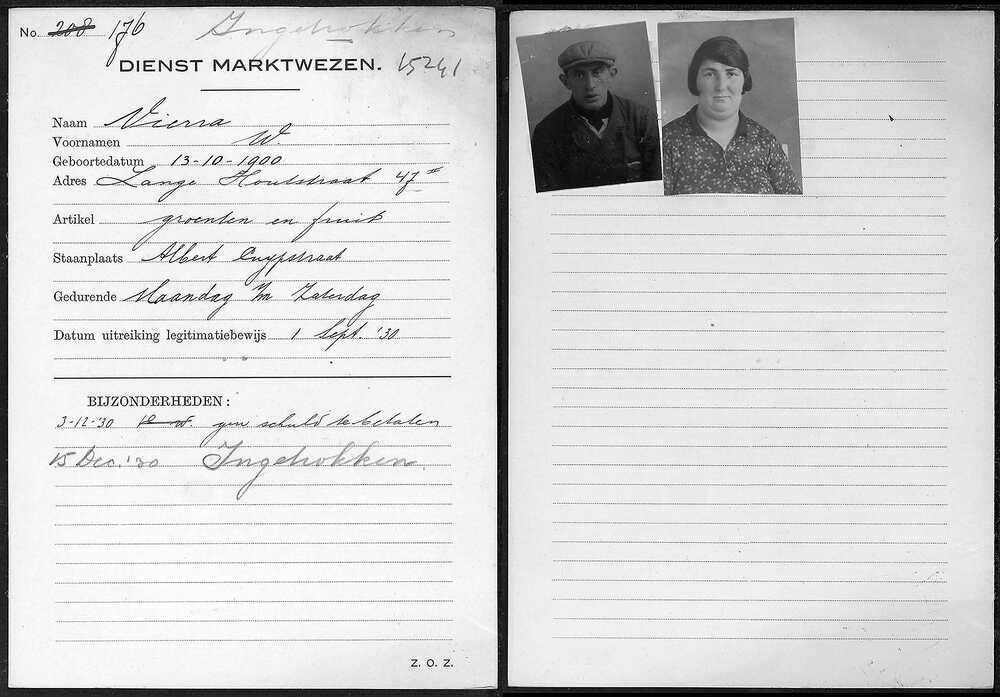 No. 208 176 Ingetrokken
DIENST MARKTWEZEN. 15241
Naam Vierra
Voornamen W.
Geboortedatum 13-10-1900
Adres Lange Houtstraat 47 II
Artikel groenten en fruit
Staanplaats Albert Cuypstraat
Gedurende Maandag t/m Zaterdag
Datum uitreiking legitimatiebewijs 1 Sept. '30
BIJZONDERHEDEN:
3-12-'30 gen schuld te betalen
15 Dec. '30 Ingetrokken.
Z. O. Z.